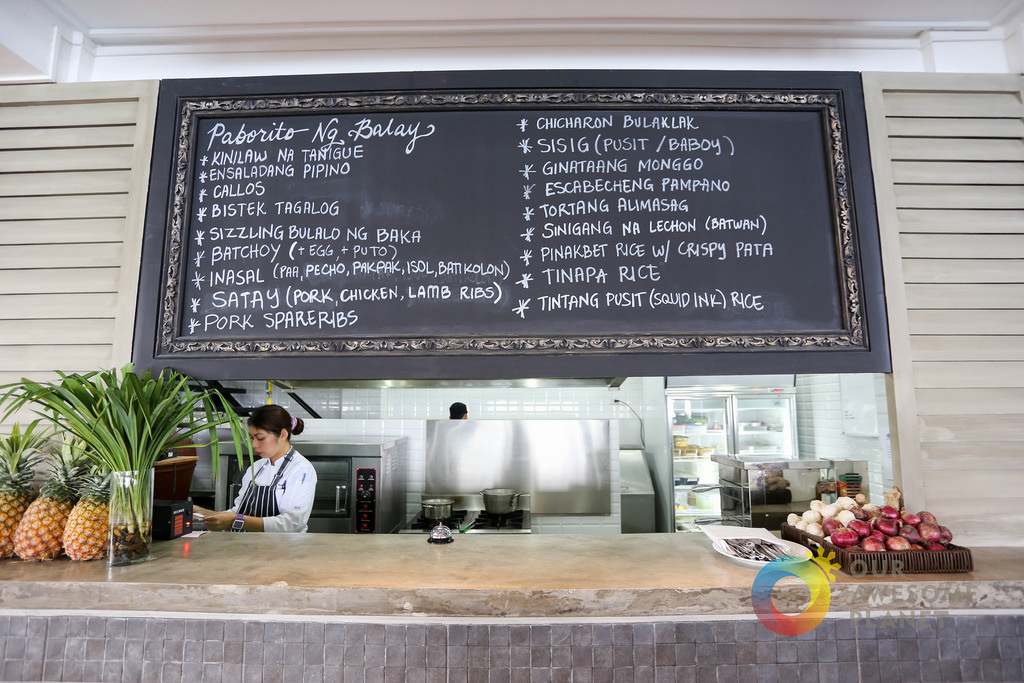 Paborito Ng Balay
* KINILAW NA TANIGUE
* ENSALADANG PIPINO
* CALLOS
* BISTEK TAGALOG
* SIZZLING BULALO NG BAKA
* BATCHOY (+ EGG, + PUTO)
* INASAL (PAA, PECHO, PAKPAK, ISOL, BATIKOLON)
* SATAY (PORK, CHICKEN, LAMB RIBS)
* PORK SPARERIBS
* CHICHARON BULAKLAK
* SISIG (PUSIT / BABOY)
* GINATAANG MONGGO
* ESCABECHENG PAMPANO
* TORTANG ALIMASAG
* SINIGANG NA LECHON (BATWAN)
* PINAKBET RICE W/ CRISPY PATA
* TINAPA RICE
* TINTANG PUSIT (SQUID INK) RICE
OUR
AWESOME
PLANET